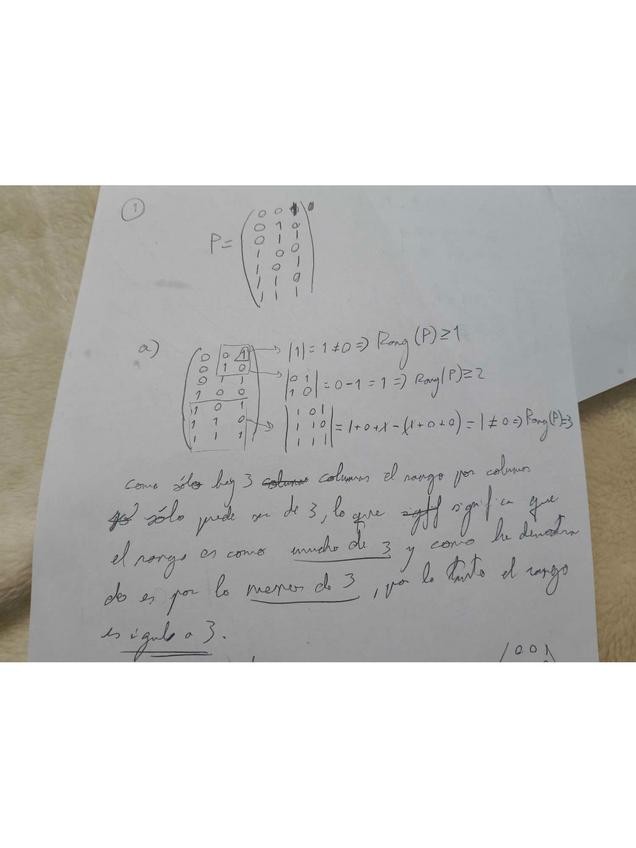 1
P = ( 0 0 1
0 1 0
0 1 1
1 0 0
1 0 1
1 1 0
1 1 1 )
a) ( 0 0 1
0 1 0
0 1 1
1 0 0
1 0 1
1 1 0
1 1 1 )
→ |1| = 1 ≠ 0 ⇒ Rang (P) ≥ 1
→ | 0 1
1 0 | = 0 - 1 = 1 ⇒ Rang(P) ≥ 2
→ | 1 0 1
1 1 0
1 1 1 | = 1 + 0 + 1 - (1 + 0 + 0) = 1 ≠ 0 ⇒ Rang(P) = 3
como sólo hay 3 columnas el rango por columnas
sólo puede ser de 3, lo que significa que
el rango es como mucho de 3 y como he demostra
do es por lo menos de 3, por lo tanto el rango
es igual a 3.
0 0 1